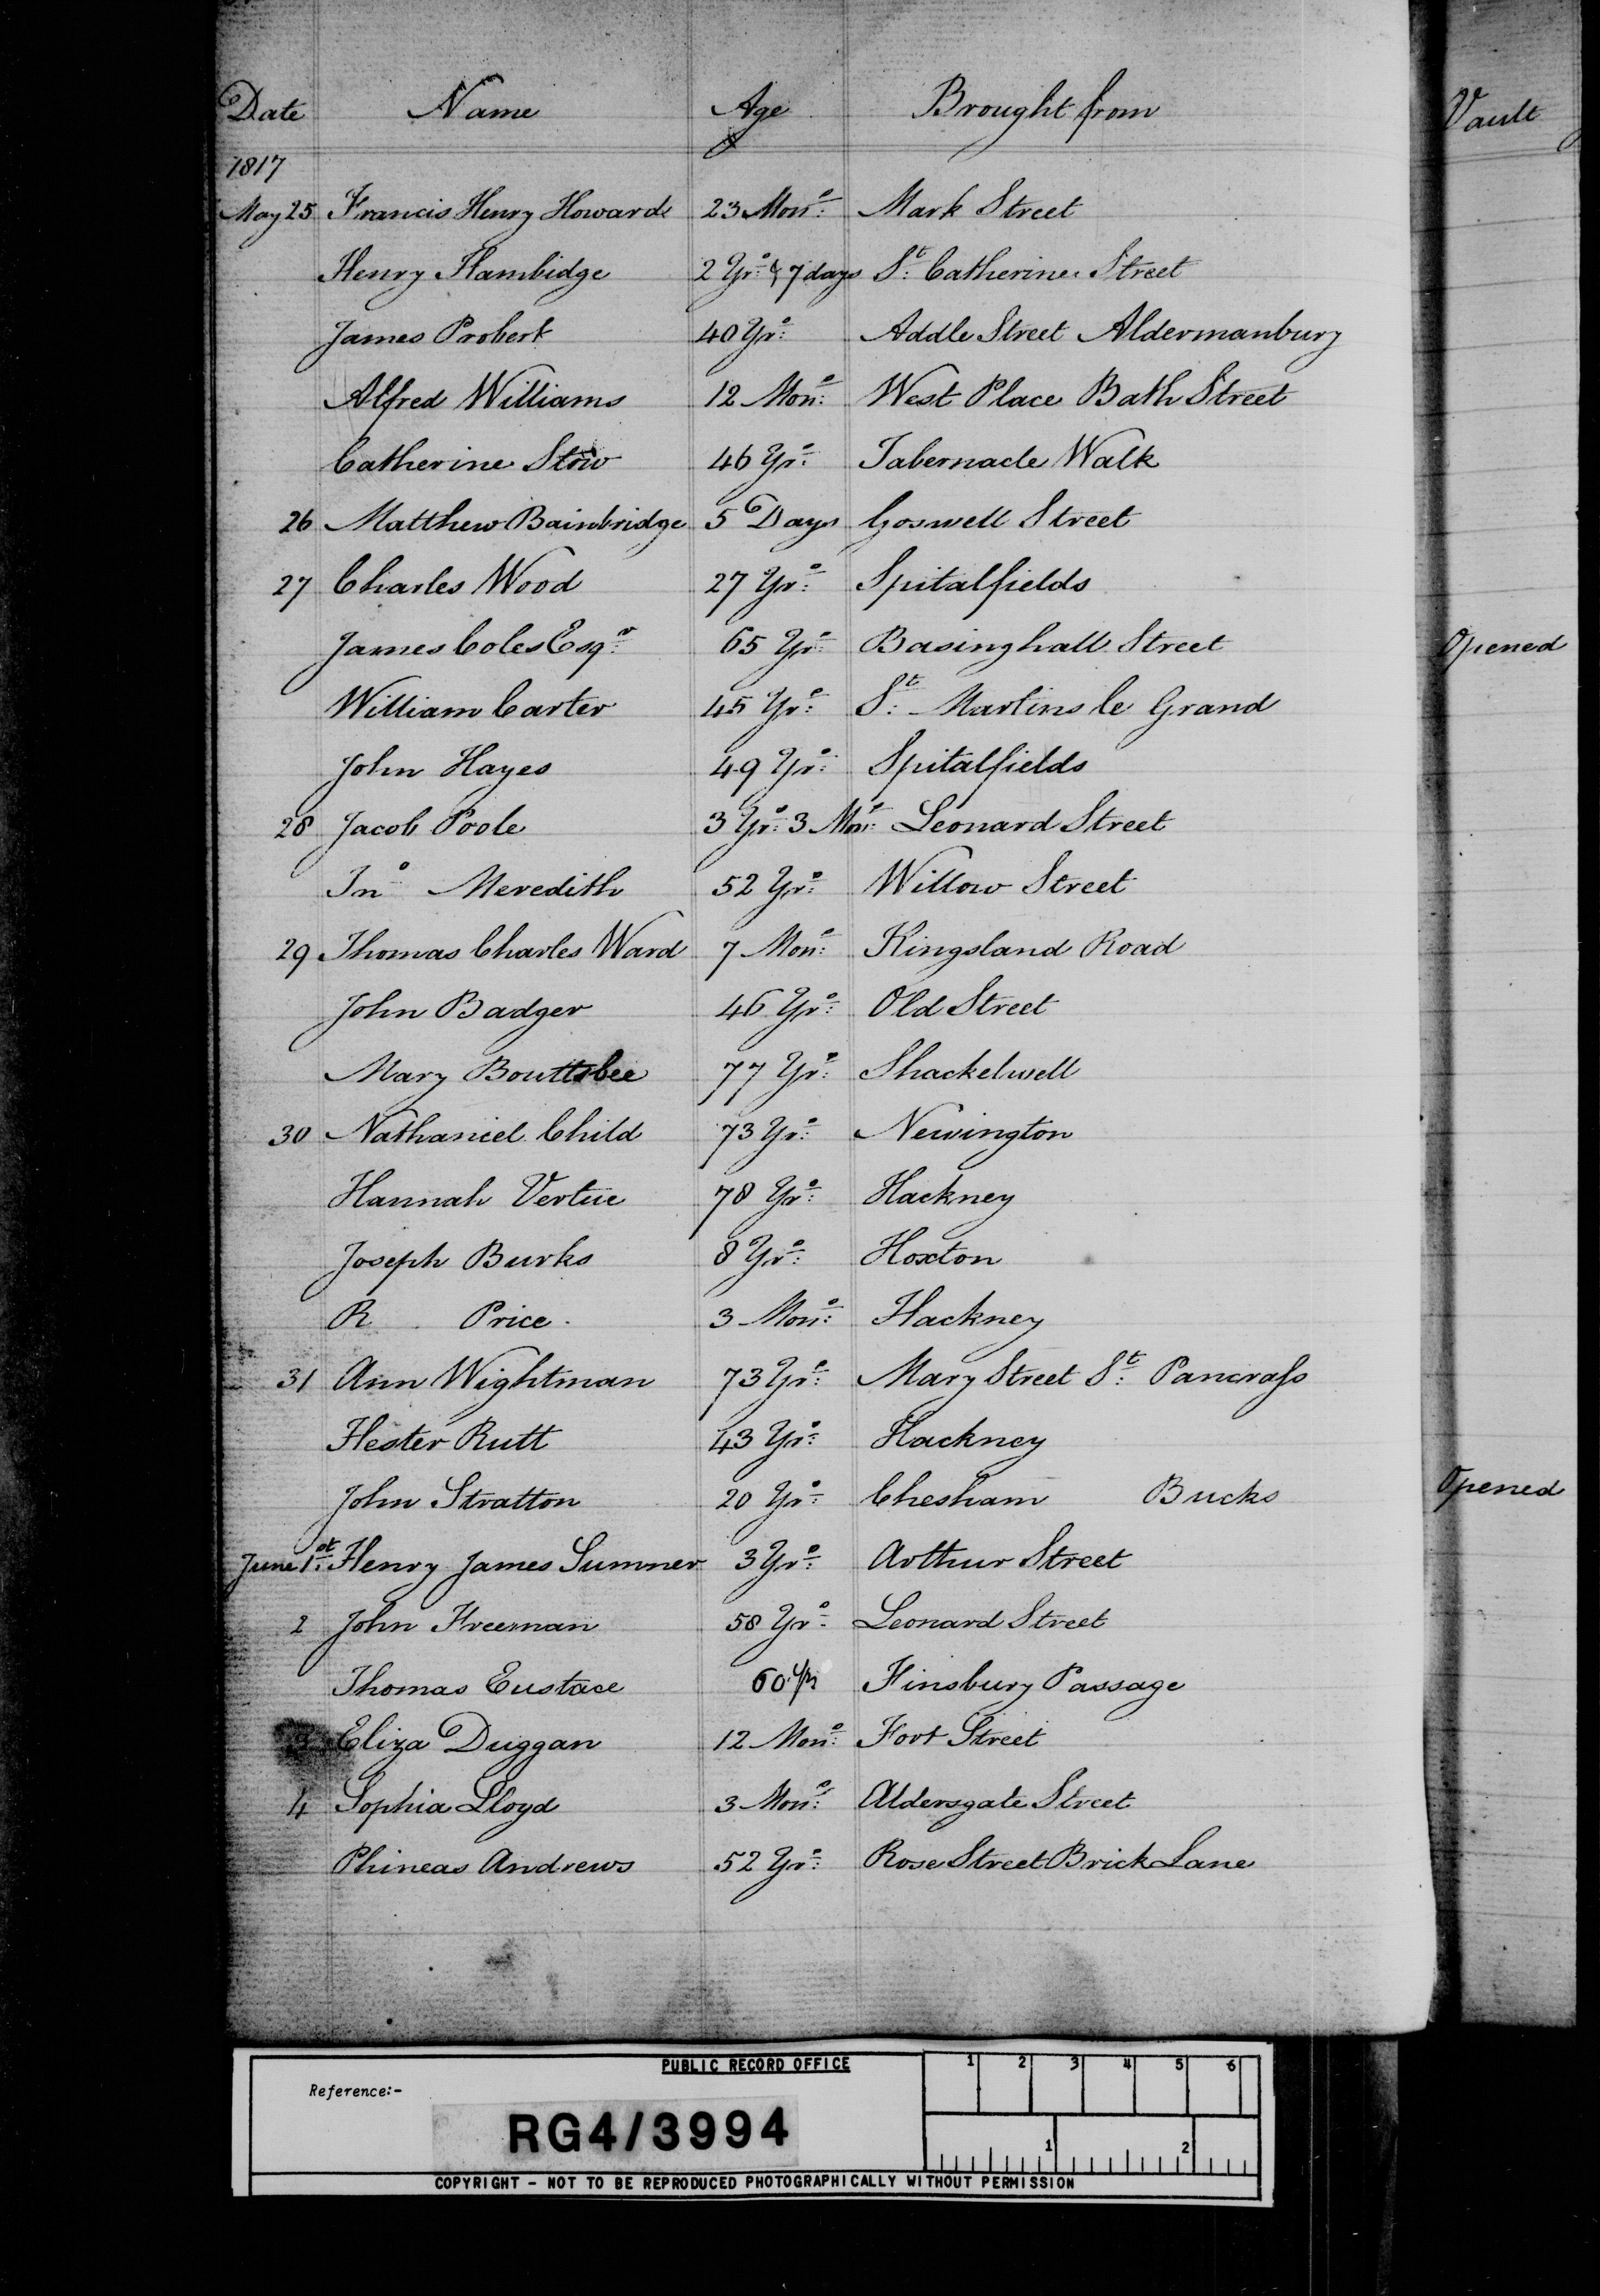 Date Name Age Brought from Vault
1817
May 25 Francis Henry Howard 23 Mos: Mark Street
Henry Hambidge 2 Yrs: & 7 days St: Catherine Street
James Probert 40 Yrs: Addle Street Aldermanbury
Alfred Williams 12 Mos: West Place Bath Street
Catherine Stow 46 Yrs: Tabernacle Walk
26 Matthew Bainbridge 5 Days Goswell Street
27 Charles Wood 27 Yrs: Spitalfields
James Coles Esqr: 65 Yrs: Basinghall Street Opened
William Carter 45 Yrs: St: Martins le Grand
John Hayes 49 Yrs: Spitalfields
28 Jacob Poole 3 Yrs: 3 Mos: Leonard Street
Jno Meredith 52 Yrs: Willow Street
29 Thomas Charles Ward 7 Mos: Kingsland Road
John Badger 46 Yrs: Old Street
Mary 77 Yrs: Shackelwell
30 Nathaniel Child 73 Yrs: Newington
Hannah Vertue 78 Yrs: Hackney
Joseph Burks 8 Yrs: Hoxton
R Price 3 Mos: Hackney
31 Ann Wightman 73 Yrs: Mary Street St: Pancrass
Hester Rutt 43 Yrs: Hackney
John Stratton 20 Yrs: Chesham Bucks Opened
June 1st: Henry James Sumner 3 Yrs: Arthur Street
2 John Freeman 58 Yrs Leonard Street
Thomas Eustace 60 Yrs Finsbury Passage
3 Eliza Duggan 12 Mos: Fort Street
4 Sophia Lloyd 3 Mos: Aldersgate Street
Phineas Andrews 52 Yrs: Rose Street Brick Lane
PUBLIC RECORD OFFICE 1 2 3 4 5 6
Reference:-
RG4/3994
1 2
COPYRIGHT - NOT TO BE REPRODUCED PHOTOGRAPHICALLY WITHOUT PERMISSION